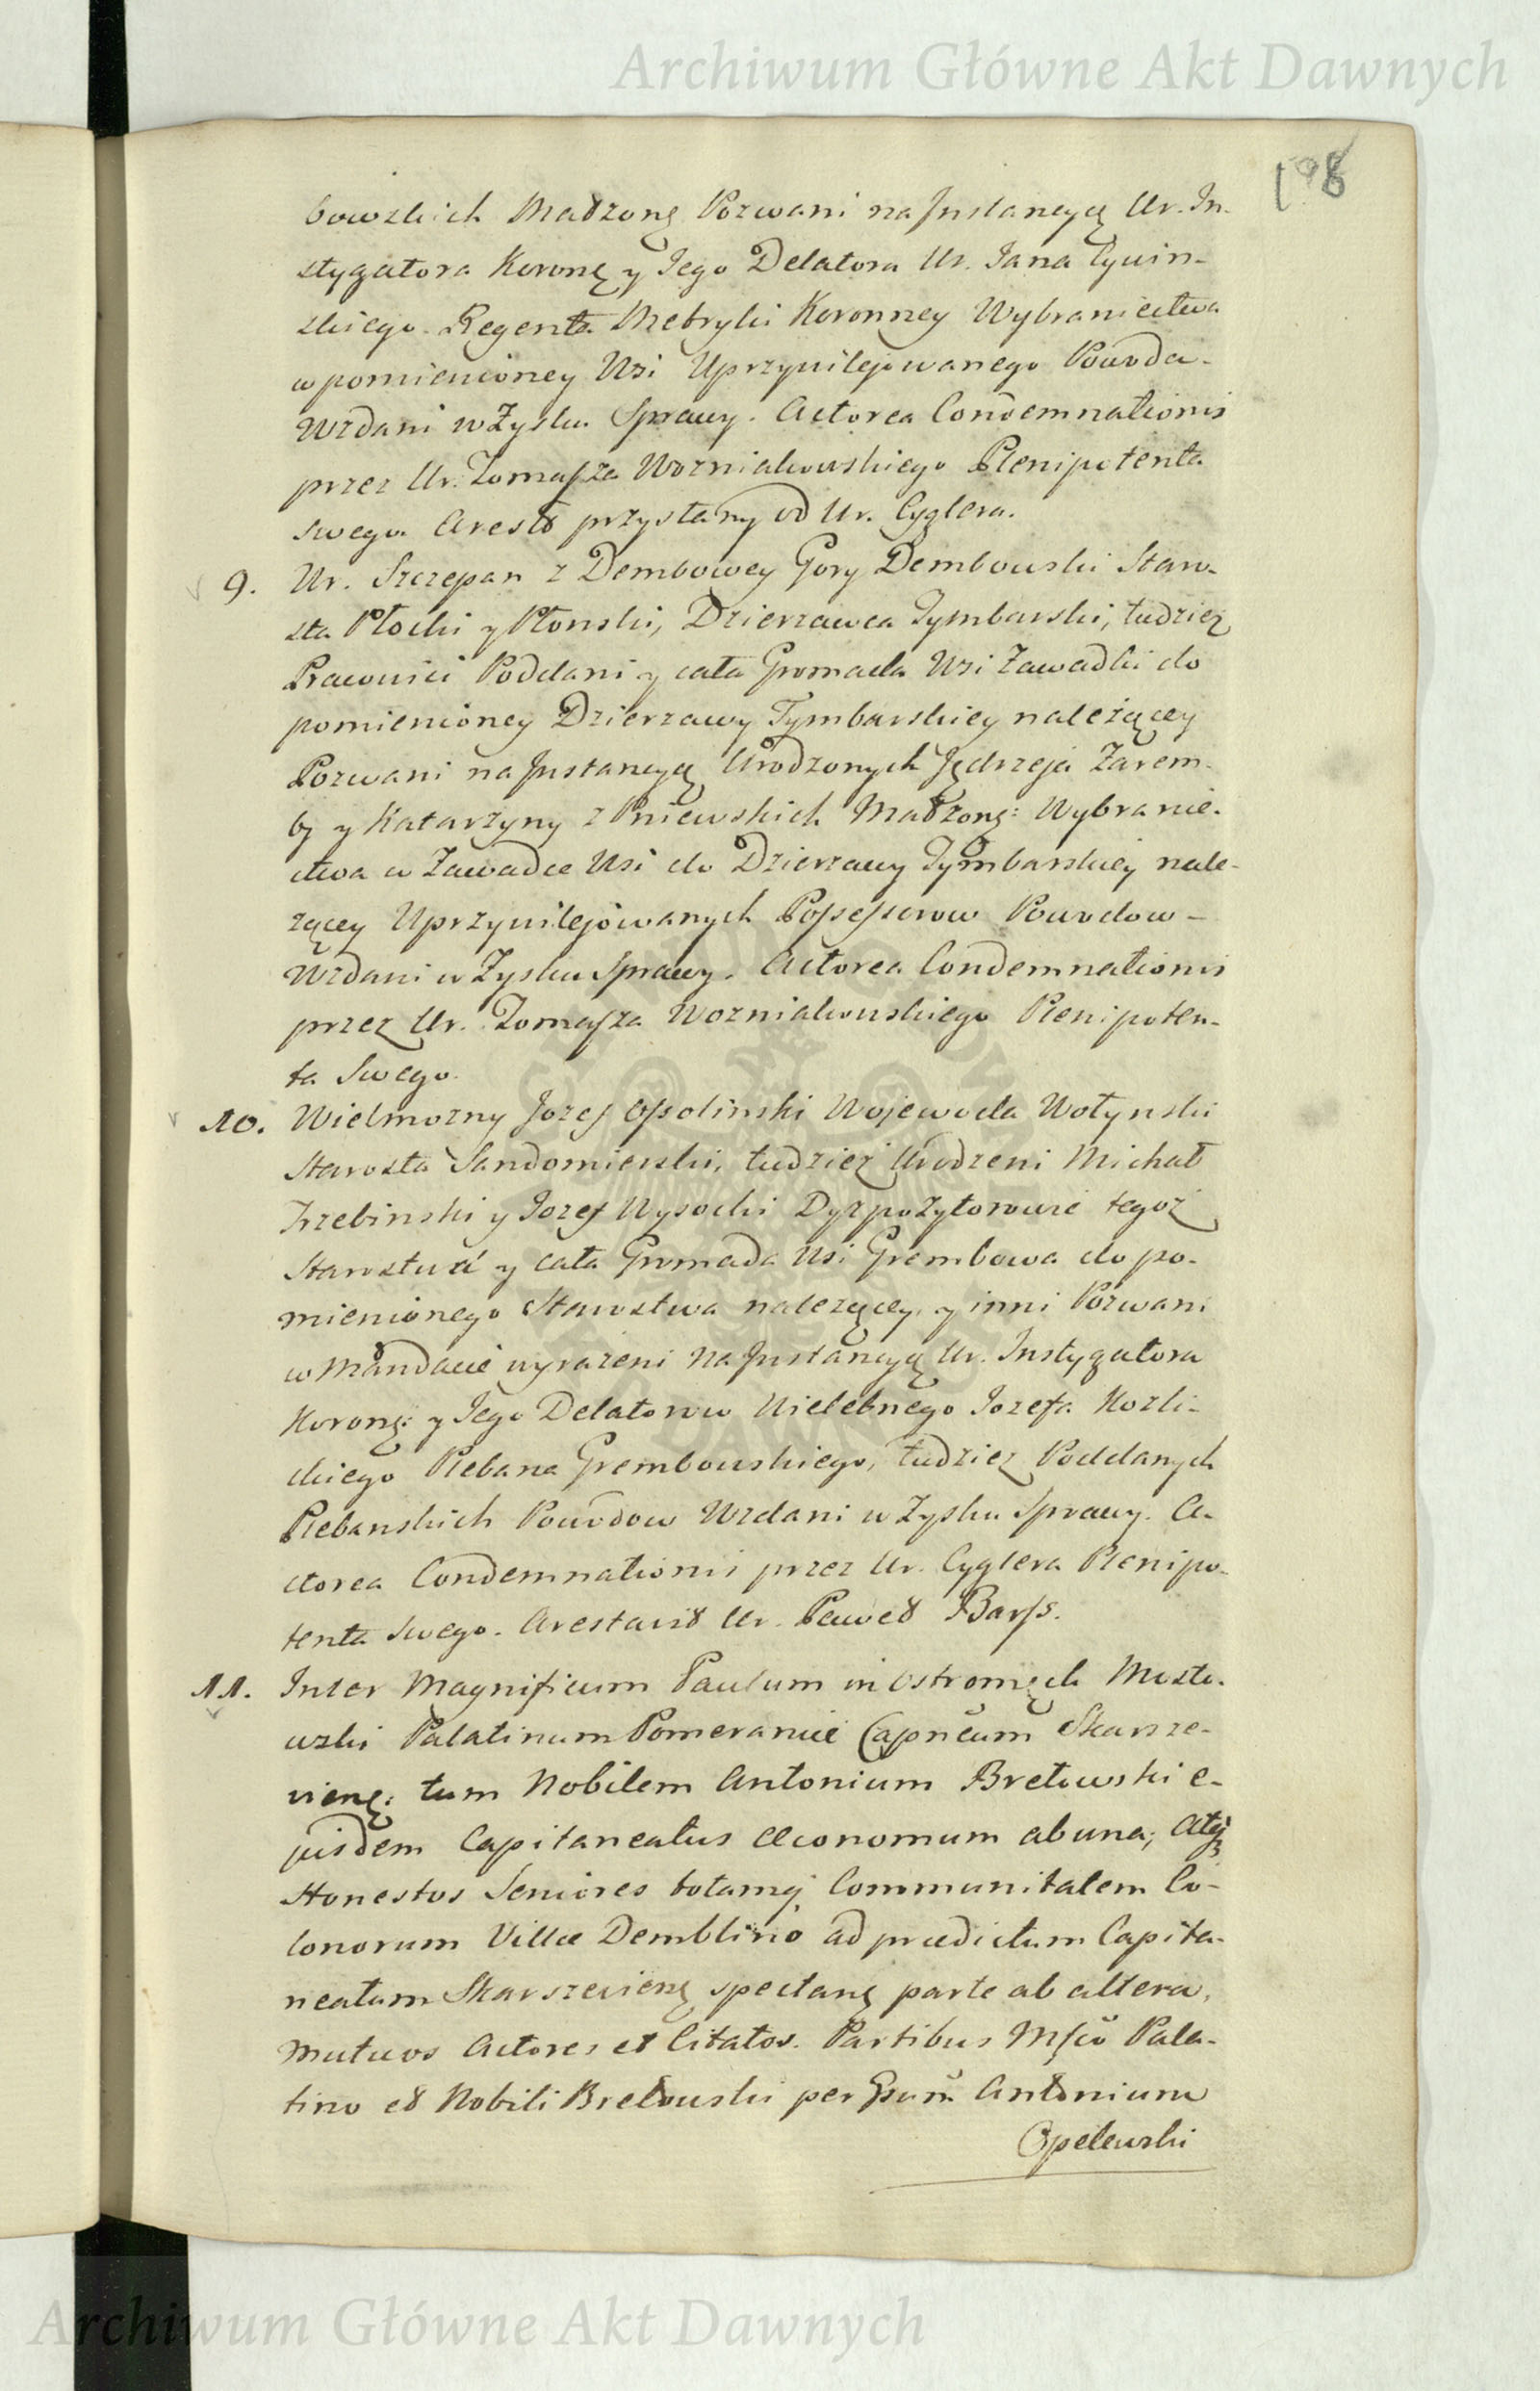 Archiwum Główne Akt Dawnych
198
bowskich Małzonę Pozwani na Jnstancyą Ur. In-
stygatora Koronę y Jego Delatora Ur. Jana Cywin-
skiego Regenta Metryki Koronney Wybraniectwa
w pomienioney Wsi Uprzywilejowanego Powoda-
Wzdani w Zysku Sprawy. Actorea Condemnationis
przez Ur. Tomasza Wozniakowskiego Plenipotenta
swego. Arest przysłany od Ur. Cyglera.
9. Ur. Szczepan z Dembowey Gory Dembowski Staro-
sta Płocki y Płonski, Dzierzawca Tymbarski, tudziez
Pracowici Poddani y cała Gromada Wsi Zawadki do
pomienioney Dzierzawy Tymbarskiey nalezącey
Pozwani na Jnstancyą Urodzonych Jędrzeja Zarem-
by y Katarzyny z Pniewskich Małzonę: Wybranie-
ctwa w Zawadce Wsi do Dzierzawy Tymbarskiey nale-
zącey Uprzywilejowanych Possessorow Powodow-
Wzdani w Zysku Sprawy. Actorea Condemnationis
przez Ur. Tomasza Wozniakowskiego Plenipoten-
ta Swego.
10. Wielmozny Jozef Ossolinski Wojewoda Wołynski
Starosta Sandomierski, tudziez Urodzeni Michał
Trzebinski y Jozef Wysocki Dyzpozytorowie tegoz
Starostwa y cała Gromada Wsi Grembowa do po-
mienionego Starostwa nalezącey, y inni Pozwani
w Mandacie wyrazeni na Jnstancyą Ur. Instygatora
Koronę: y Jego Delatorow Wielebnego Jozefa Kozli-
ckiego Plebana Grembowskiego, tudziez Poddanych
Plebanskich Powodow Wzdani w Zysku Sprawy. A-
ctorea Condemnationis przez Ur. Cyglera Plenipo-
tenta swego. Arestawił Ur. Paweł Barss.
11. Inter Magnificum Paulum in Ostromęch Mosto-
wski Palatinum Pomeraniæ Capneum Skarsze-
vienę: tum Nobilem Antonium Bretowski e-
jusdem Capitaneatus Œconomum ab una; Atq
Honestos Seniores totamq Communitatem Co-
lonorum Villæ Demblino ad prædictum Capita-
neatum Skarszevienę spectanę parte ab altera,
Mutuos Actores et Citatos. Partibus Mfco Pala-
tino et Nobili Bretowski per Gsum Antonium
Opelewski
Archiwum Główne Akt Dawnych